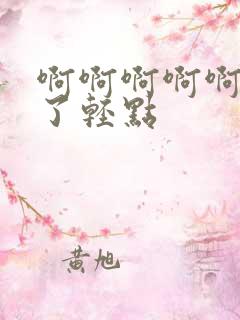 啊啊啊啊啊
了轻點
黄旭